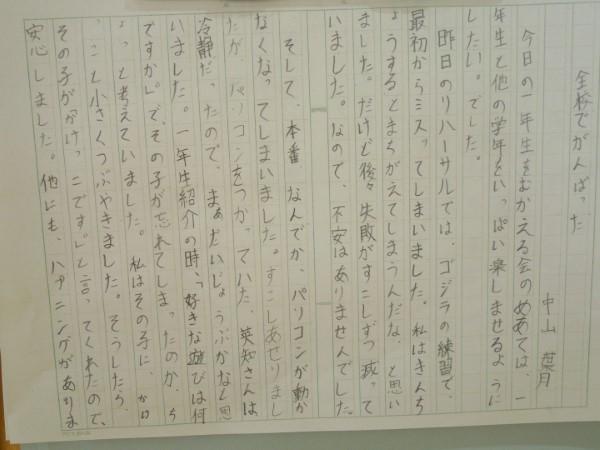 全校でがんばった
中山 葉月
今日の一年生をむかえる会のめあては、「一
年生と他の学年といっぱい楽しませるように
したい。」でした。
昨日のリハーサルでは、ゴジラの練習で、
最初からミスってしまいました。私はきんち
ょうするとまちがえてしまうんだな、と思い
ました。だけど後々失敗がすこしずつ減って
いました。なので、不安はありませんでした。
そして、本番、なんでか、パソコンが動か
なくなってしまいました。すこしあせりまし
たが、パソコンをうかっていた、英知さんは
冷静だったので、まぁだいじょうぶかなと思
いました。一年生紹介の時、「好きな遊びは何
ですか。」で、その子が忘れてしまったのか、う
ーっと考えていました。私はその子に、「かけ
っこ」と小さくつぶやきました。そうしたら、
その子が「かけっこです。」と言ってくれたので、
安心しました。他にも、ハプニングがありま